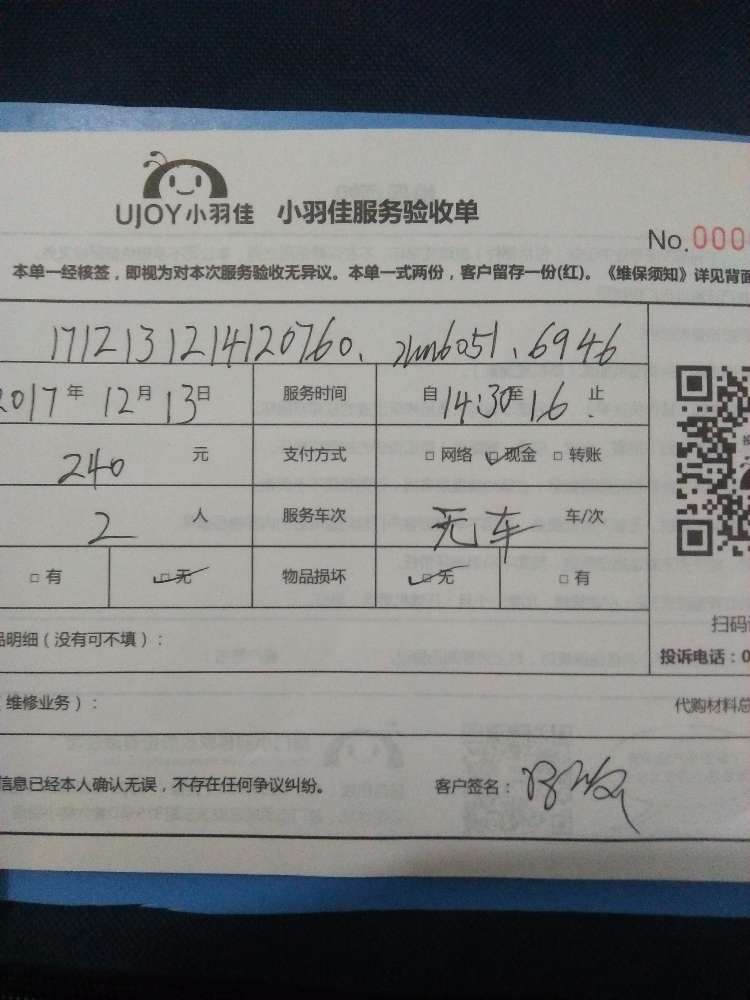 UJOY小羽佳 小羽佳服务验收单
No.000
本单一经核签，即视为对本次服务验收无异议。本单一式两份，客户留存一份(红)。《维保须知》详见背面
1712131214120760. 6051.6946
2017年12月13日 服务时间 自14:30至16止
240元 支付方式 □网络 □现金 □转账
2人 服务车次 无车 车/次
□有 □无 物品损坏 □无 □有
扫码
品明细（没有可不填）：
投诉电话：0
（维修业务）：
代购材料总
信息已经本人确认无误，不存在任何争议纠纷。 客户签名：